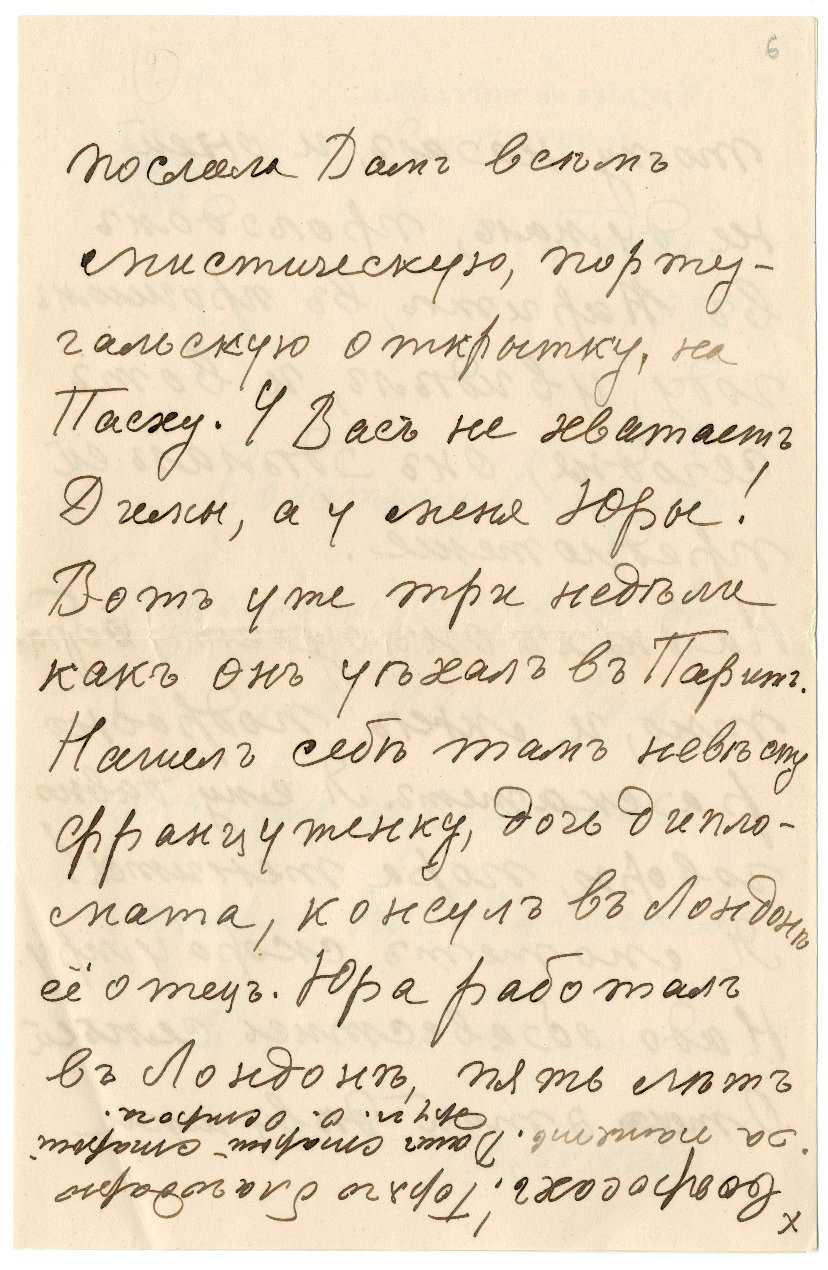 6
послала Вамъ всѣмъ
мистическую, порту-
гальскую открытку, на
Пасху. У Васъ не хватаетъ
Димы, а у меня Юры!
Вотъ уже три недѣли
какъ онъ уѣхалъ въ Парижъ.
Нашелъ себѣ тамъ невѣсту
француженку, дочь дипло-
мата, консулъ въ Лондонѣ
её отецъ. Юра работалъ
въ Лондонѣ, пять лѣтъ
х вопросахъ! Горячо благодарю
за память. Вашъ старый - старый
другъ. О.